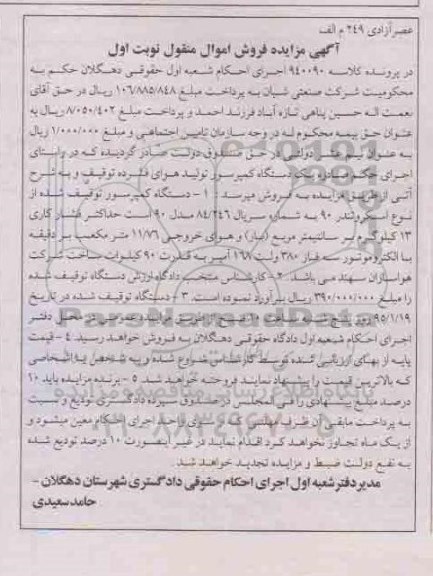 عصر آزادی ۲۴۹ م الف
آگهی مزایده فروش اموال منقول نوبت اول
در پرونده کلاسه ۹۴۰۰۹۰ اجرای احکام شعبه اول حقوقی دهگلان حکم به
محکومیت شرکت صنعتی شبان به پرداخت مبلغ ۱۰۶/۸۸۵/۸۴۸ ریال در حق آقای
نعمت اله حسین پناهی تازه آباد فرزند احمد و پرداخت مبلغ ۸/۰۵۰/۴۰۲ ریال به
عنوان حق بیمه محکوم له در وجه سازمان تامین اجتماعی و مبلغ ۱/۰۰۰/۰۰۰ ریال
به عنوان نیم عشر دولتی در حق صندوق دولت صادر گردیده که در راستای
اجرای حکم صادره یک دستگاه کمپرسور تولید هوای فشرده توقیف و به شرح
آتی از طریق مزایده به فروش میرسد : ۱ - دستگاه کمپرسور توقیف شده از
نوع اسکرو تندر ۹۰ به شماره سریال ۸۴/۲۴۶ مدل ۹۰ است حداکثر فشار کاری
۱۳ کیلوگرم بر سانتیمتر مربع (بار) و هوای خروجی ۱۱/۷۶ متر مکعب بر دقیقه
با الکتروموتور سه فاز ۳۸۰ ولت ۱۶۸ آمپر به قدرت ۹۰ کیلووات ساخت شرکت
هواسازان سهند می باشد. ۲ - کارشناس منتخب دادگاه ارزش دستگاه توقیف شده
را مبلغ ۳۹۰/۰۰۰/۰۰۰ ریال برآورد نموده است. ۳ - دستگاه توقیف شده در تاریخ
۹۵/۱/۱۹ روز پنج شنبه ساعت ۱۰ صبح از طریق مزایده عمومی در محل دفتر
اجرای احکام شعبه اول دادگاه حقوقی دهگلان به فروش خواهد رسید. ۴ - قیمت
پایه از بهای ارزیابی شده توسط کارشناس شروع شده و به شخص یا اشخاصی
که بالاترین قیمت را پیشنهاد نمایند فروخته خواهد شد. ۵ - برنده مزایده باید ۱۰
درصد مبلغ پیشنهادی را فی المجلس در صندوق سپرده دادگستری تودیع و نسبت
به پرداخت مابقی آن ظرف مهلتی که از سوی اجرای احکام معین میشود و
از یک ماه تجاوز نخواهد کرد اقدام نماید در غیر اینصورت ۱۰ درصد تودیع شده
به نفع دولت ضبط و مزایده تجدید خواهد شد.
مدیر دفتر شعبه اول اجرای احکام حقوقی دادگستری شهرستان دهگلان -
حامد سعیدی
ParsNamadData